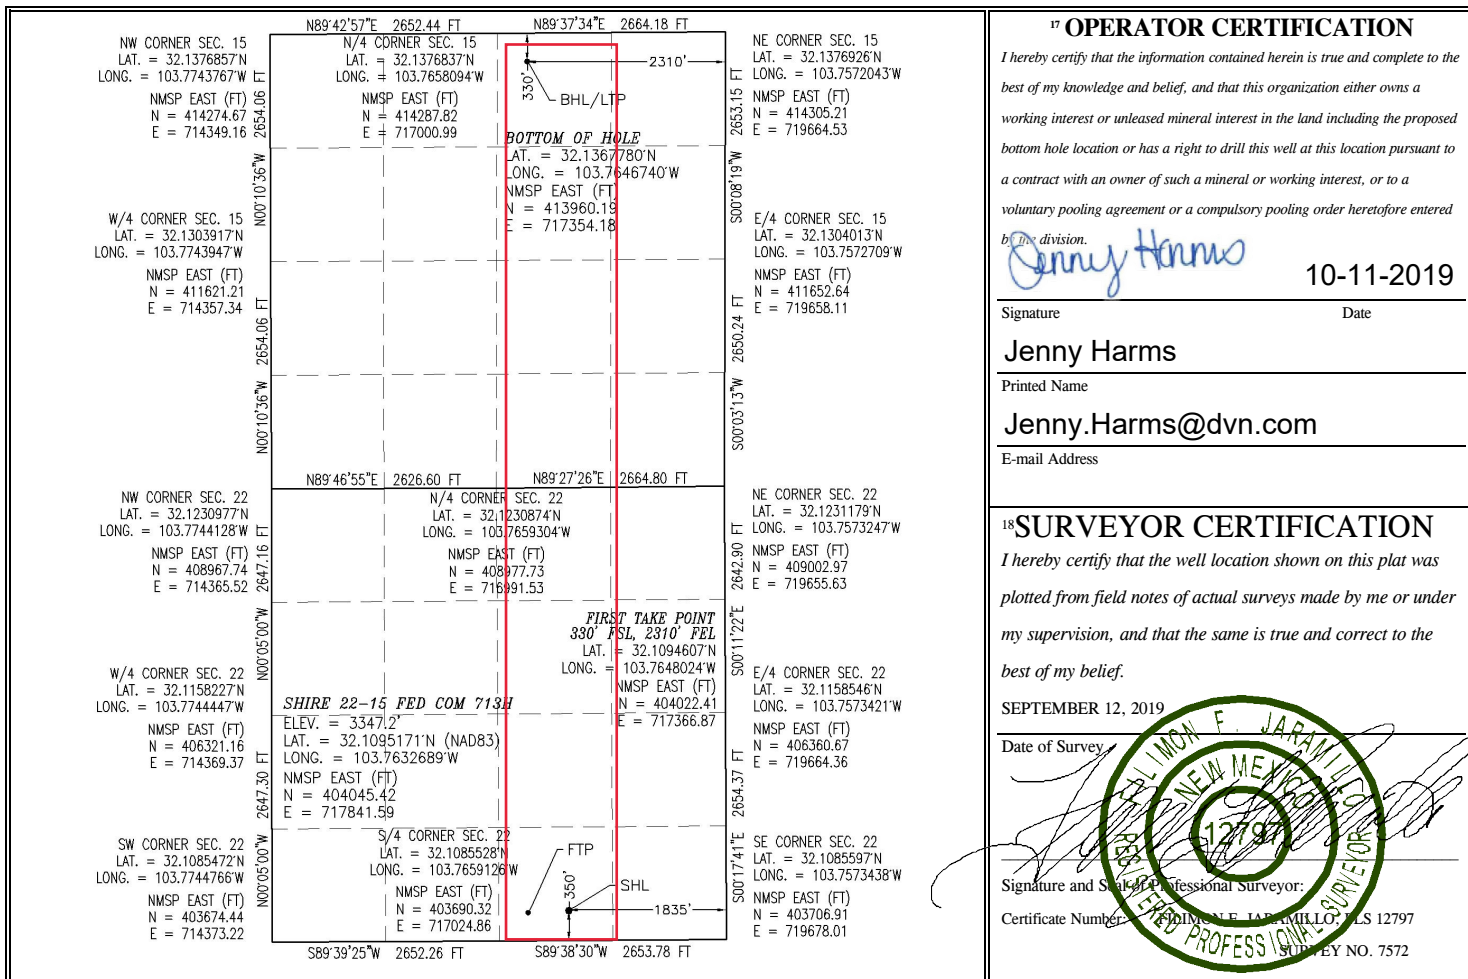 N89°42'57"E 2652.44 FT
N89°37'34"E 2664.18 FT
NW CORNER SEC. 15
LAT. = 32.1376857'N
LONG. = 103.7743767'W
NMSP EAST (FT)
N = 414274.67
E = 714349.16
N/4 CORNER SEC. 15
LAT. = 32.1376837'N
LONG. = 103.7658094'W
NMSP EAST (FT)
N = 414287.82
E = 717000.99
330'
2310'
BHL/LTP
NE CORNER SEC. 15
LAT. = 32.1376926'N
LONG. = 103.7572043'W
NMSP EAST (FT)
N = 414305.21
E = 719664.53
N00°10'36"W 2654.06 FT
S00°08'19"W 2653.15 FT
BOTTOM OF HOLE
LAT. = 32.1367780'N
LONG. = 103.7646740'W
NMSP EAST (FT)
N = 413960.19
E = 717354.18
W/4 CORNER SEC. 15
LAT. = 32.1303917'N
LONG. = 103.7743947'W
NMSP EAST (FT)
N = 411621.21
E = 714357.34
E/4 CORNER SEC. 15
LAT. = 32.1304013'N
LONG. = 103.7572709'W
NMSP EAST (FT)
N = 411652.64
E = 719658.11
N00°10'36"W 2654.06 FT
S00°03'13"W 2650.24 FT
N89°46'55"E 2626.60 FT
N89°27'26"E 2664.80 FT
NW CORNER SEC. 22
LAT. = 32.1230977'N
LONG. = 103.7744128'W
NMSP EAST (FT)
N = 408967.74
E = 714365.52
N/4 CORNER SEC. 22
LAT. = 32.1230874'N
LONG. = 103.7659304'W
NMSP EAST (FT)
N = 408977.73
E = 716991.53
NE CORNER SEC. 22
LAT. = 32.1231179'N
LONG. = 103.7573247'W
NMSP EAST (FT)
N = 409002.97
E = 719655.63
N00°05'00"W 2647.16 FT
S00°11'22"E 2642.90 FT
FIRST TAKE POINT
330' FSL, 2310' FEL
LAT. = 32.1094607'N
LONG. = 103.7648024'W
NMSP EAST (FT)
N = 404022.41
E = 717366.87
W/4 CORNER SEC. 22
LAT. = 32.1158227'N
LONG. = 103.7744447'W
NMSP EAST (FT)
N = 406321.16
E = 714369.37
SHIRE 22-15 FED COM 713H
ELEV. = 3347.2'
LAT. = 32.1095171'N (NAD83)
LONG. = 103.7632689'W
NMSP EAST (FT)
N = 404045.42
E = 717841.59
E/4 CORNER SEC. 22
LAT. = 32.1158546'N
LONG. = 103.7573421'W
NMSP EAST (FT)
N = 406360.67
E = 719664.36
N00°05'00"W 2647.30 FT
S00°17'41"E 2654.37 FT
SW CORNER SEC. 22
LAT. = 32.1085472'N
LONG. = 103.7744766'W
NMSP EAST (FT)
N = 403674.44
E = 714373.22
S/4 CORNER SEC. 22
LAT. = 32.1085528'N
LONG. = 103.7659126'W
NMSP EAST (FT)
N = 403690.32
E = 717024.86
FTP
350'
SHL
1835'
SE CORNER SEC. 22
LAT. = 32.1085597'N
LONG. = 103.7573438'W
NMSP EAST (FT)
N = 403706.91
E = 719678.01
S89°39'25"W 2652.26 FT
S89°38'30"W 2653.78 FT
17 OPERATOR CERTIFICATION
I hereby certify that the information contained herein is true and complete to the
best of my knowledge and belief, and that this organization either owns a
working interest or unleased mineral interest in the land including the proposed
bottom hole location or has a right to drill this well at this location pursuant to
a contract with an owner of such a mineral or working interest, or to a
voluntary pooling agreement or a compulsory pooling order heretofore entered
by the division.
Jenny Harms
10-11-2019
Signature Date
Jenny Harms
Printed Name
Jenny.Harms@dvn.com
E-mail Address
18 SURVEYOR CERTIFICATION
I hereby certify that the well location shown on this plat was
plotted from field notes of actual surveys made by me or under
my supervision, and that the same is true and correct to the
best of my belief.
SEPTEMBER 12, 2019
Date of Survey
FILIMON F. JARAMILLO
NEW MEXICO
12797
REGISTERED PROFESSIONAL SURVEYOR
Signature and Seal of Professional Surveyor:
Certificate Number: FILIMON F. JARAMILLO, PLS 12797
SURVEY NO. 7572